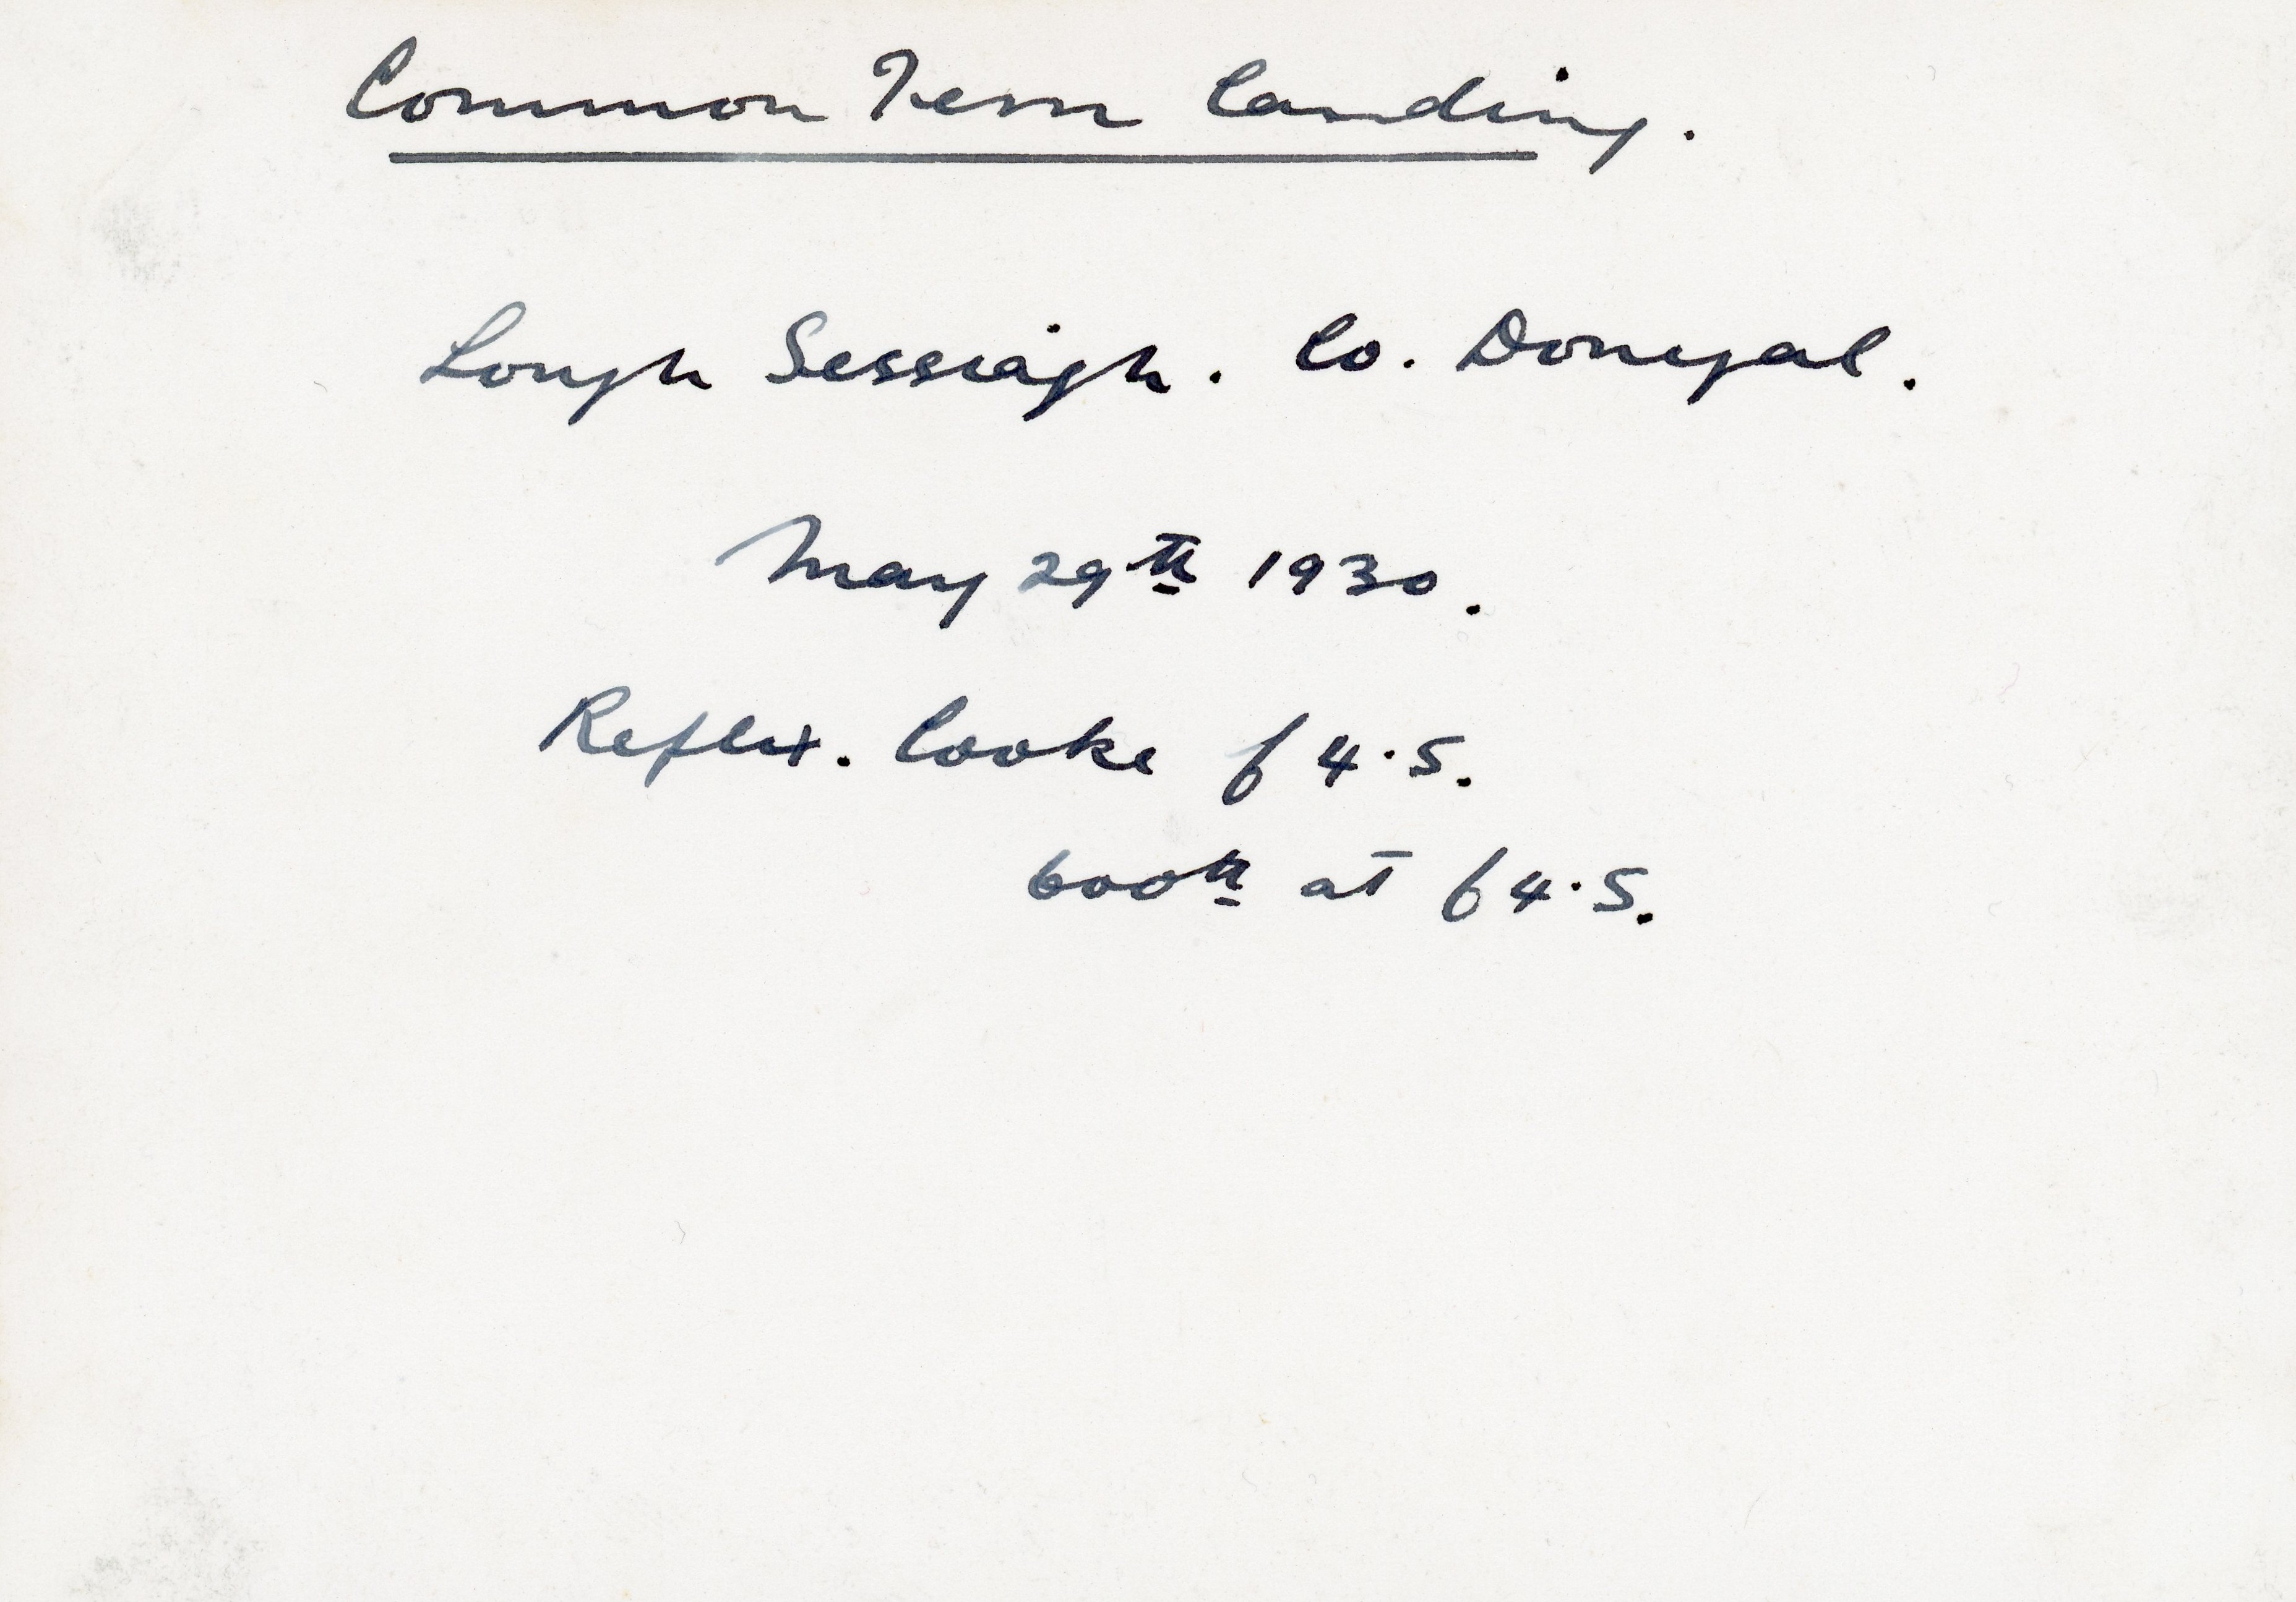 Common Tern landing.
Lough Sessiagh. Co. Donegal.
May 29th 1930.
Reflex. Cooke f 4.5.
600th at f 4.5.